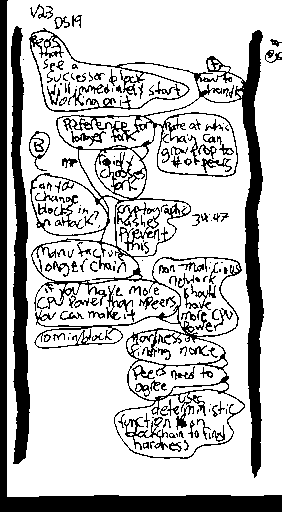 V23
DS19
Peers
that
see a
successor block
will immediately start
working on it
how to
Preference for
longer fork
rate at which
chain can
grow prop to
# of peers
B
rapidly
chooses
fork
Can you
change
blocks in
an attack?
cryptographic
hashes
prevent
this
34:47
Manufacture
longer chain
non malicious
network
should
have
more CPU
power
if you have more
CPU Power than peers
you can make it
10 min/block
Hardness of
finding nonce
Peers need to
agree
uses
deterministic
function on
blockchain to find
hardness